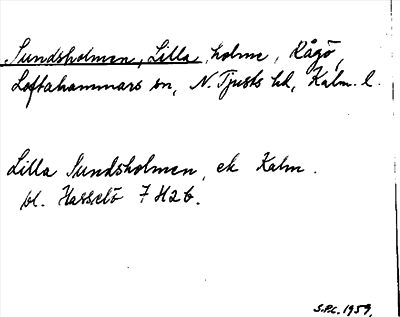 Sundsholmen, Lilla, holme, Rågö,
Loftahammars sn, N. Tjusts hd, Kalm. l.
Lilla Sundsholmen, ek Kalm.
bl. Hasselö 7 H 2 b.
S.P.L. 1959.